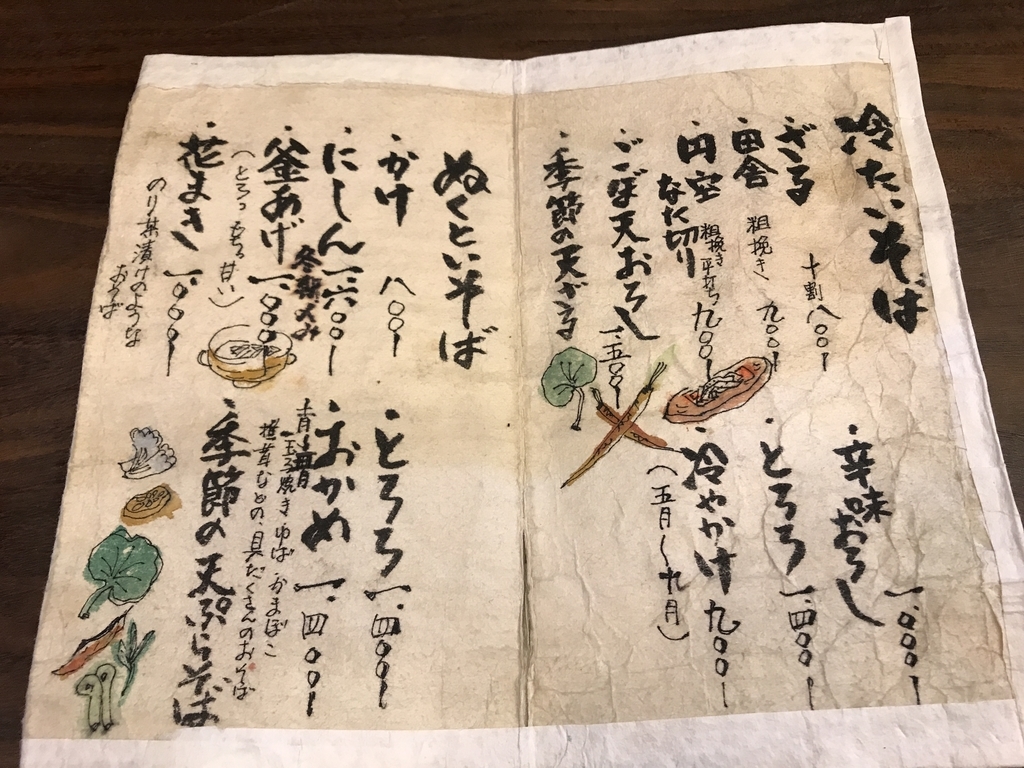 冷たいそば
・ざる 十割 八〇〇ー
・田舎 粗挽き 九〇〇ー
・円空 なた切り 粗挽き 平打ち 九〇〇ー
・ごぼ天おろし 一、五〇〇ー
・季節の天ざる
辛味おろし 一、〇〇〇ー
・とろろ 一、四〇〇ー
・冷やかけ 九〇〇ー
(五月〜九月)
ぬくといそば
・かけ 八〇〇ー
・にしん 一、六〇〇ー
冬期のみ
・釜あげ 一、〇〇〇ー
(とろっ もちっ 甘い)
・花まき 一、〇〇〇ー
のり茶漬けのような
おそば
・とろろ 一、四〇〇ー
・おかめ 一、四〇〇ー
玉子焼き ゆば かまぼこ
椎茸などの、具だくさんのおそば
・季節の天ぷらそば